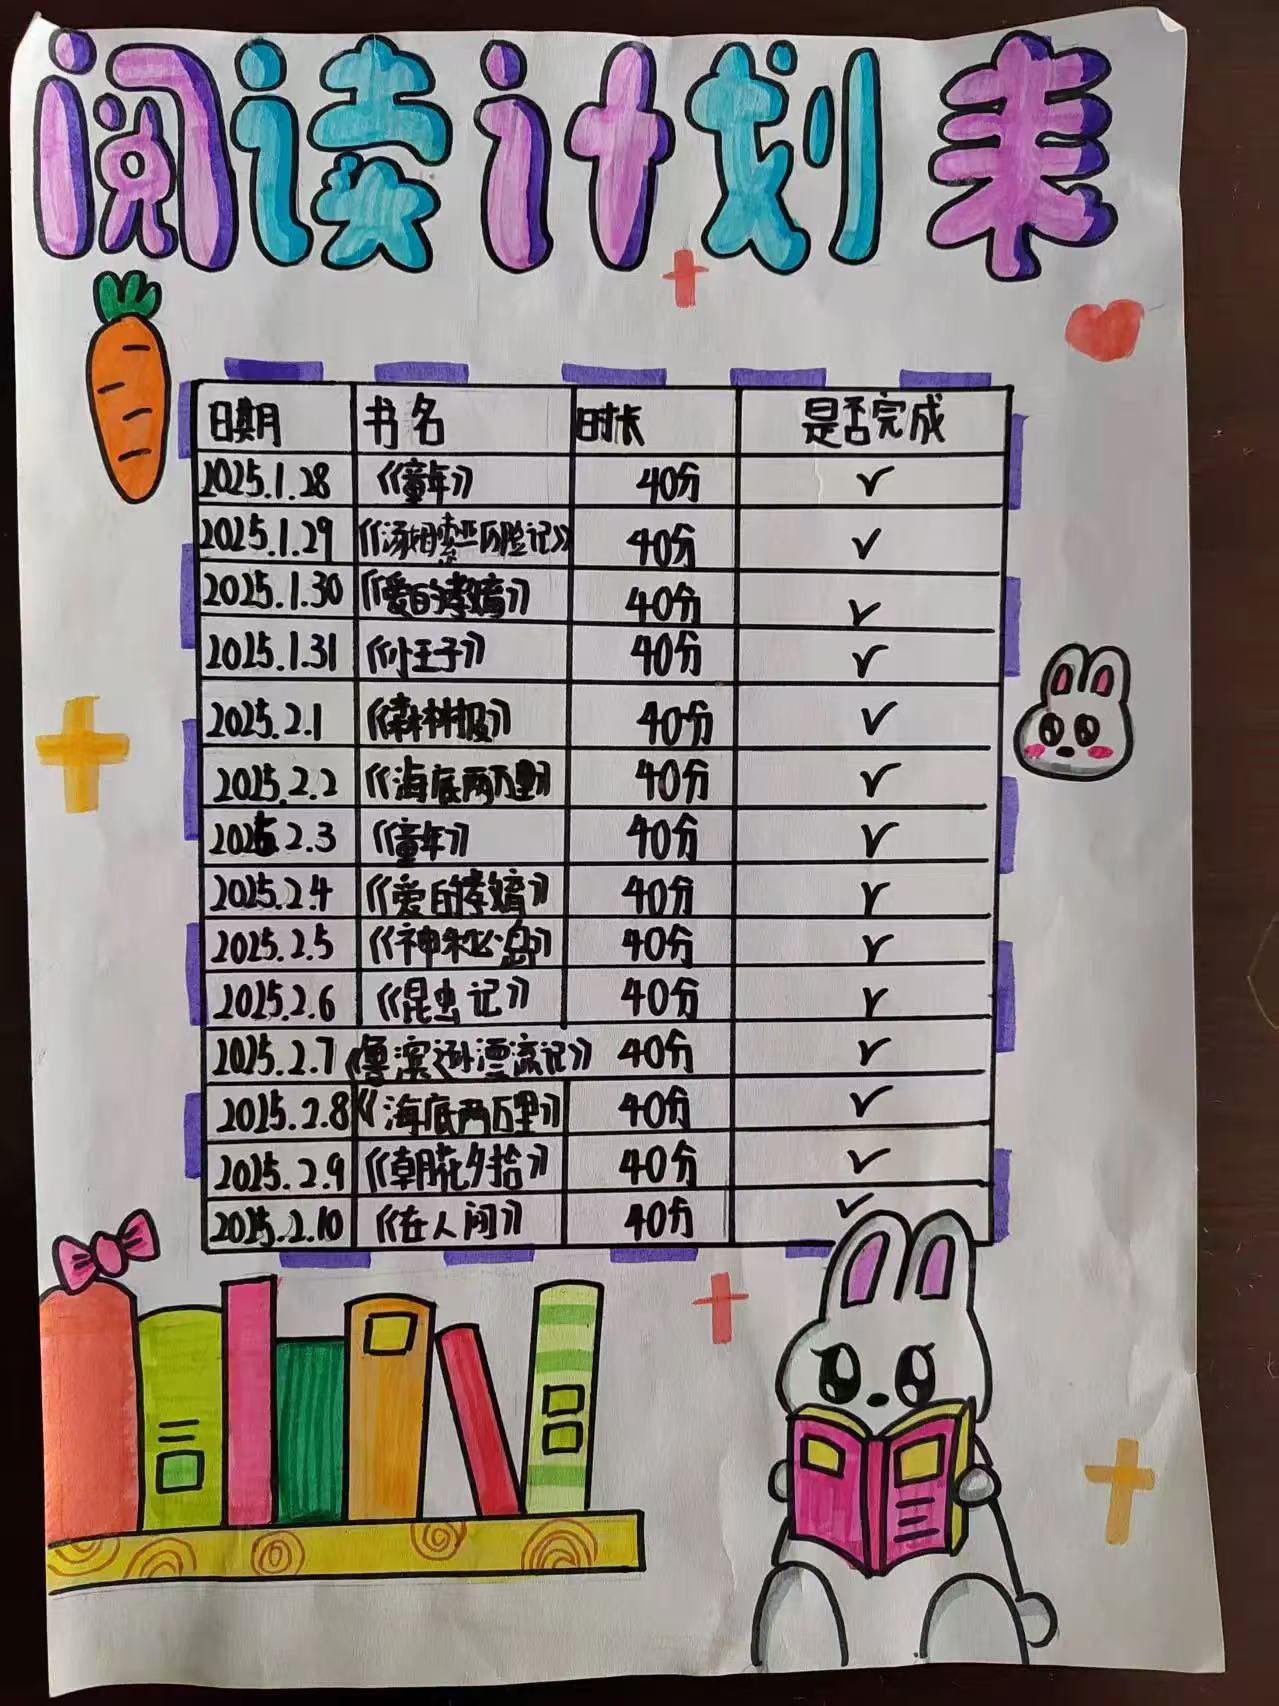 阅读计划表
日期 书名 时长 是否完成
2025.1.28 《童年》 40分 ✓
2025.1.29 《汤姆索亚历险记》 40分 ✓
2025.1.30 《爱的教育》 40分 ✓
2025.1.31 《小王子》 40分 ✓
2025.2.1 《森林报》 40分 ✓
2025.2.2 《海底两万里》 40分 ✓
2025.2.3 《童年》 40分 ✓
2025.2.4 《爱的教育》 40分 ✓
2025.2.5 《神秘岛》 40分 ✓
2025.2.6 《昆虫记》 40分 ✓
2025.2.7 《鲁滨逊漂流记》 40分 ✓
2025.2.8 《海底两万里》 40分 ✓
2025.2.9 《朝花夕拾》 40分 ✓
2025.2.10 《在人间》 40分 ✓